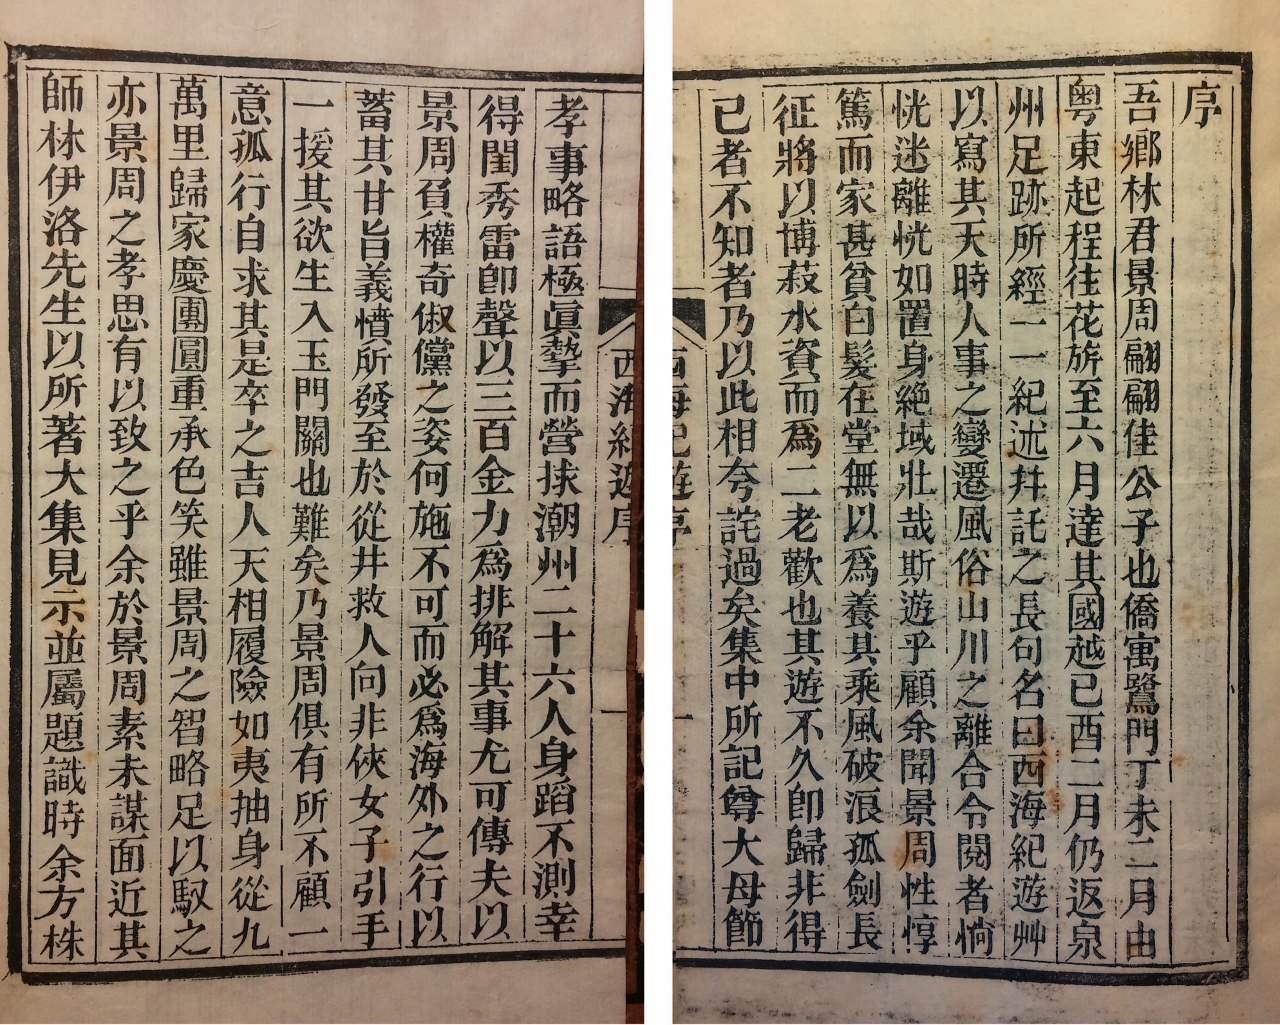 序
吾鄉林君景周翩翩佳公子也僑寓鷺門丁未二月由
粵東起程往花旂至六月達其國越己酉二月仍返泉
州足跡所經一一紀述幷託之長句名曰西海紀遊艸
以寫其天時人事之變遷風俗山川之離合令閱者惝
恍迷離恍如置身絕域壯哉斯遊乎顧余聞景周性惇
篤而家甚貧白髮在堂無以爲養其乘風破浪孤劍長
征將以博菽水資而爲二老歡也其遊不久卽歸非得
已者不知者乃以此相夸詫過矣集中所記尊大母節
西海紀遊序
一
孝事略語極眞摯而營捄潮州二十六人身蹈不測幸
得閨秀雷卽聲以三百金力爲排解其事尤可傳夫以
景周負權奇俶儻之姿何施不可而必爲海外之行以
蓄其甘旨義憤所發至於從井救人向非俠女子引手
一援其欲生入玉門關也難矣乃景周俱有所不顧一
意孤行自求其是卒之吉人天相履險如夷抽身從九
萬里歸家慶團圓重承色笑雖景周之智略足以馭之
亦景周之孝思有以致之乎余於景周素未謀面近其
師林伊洛先生以所著大集見示並屬題識時余方株